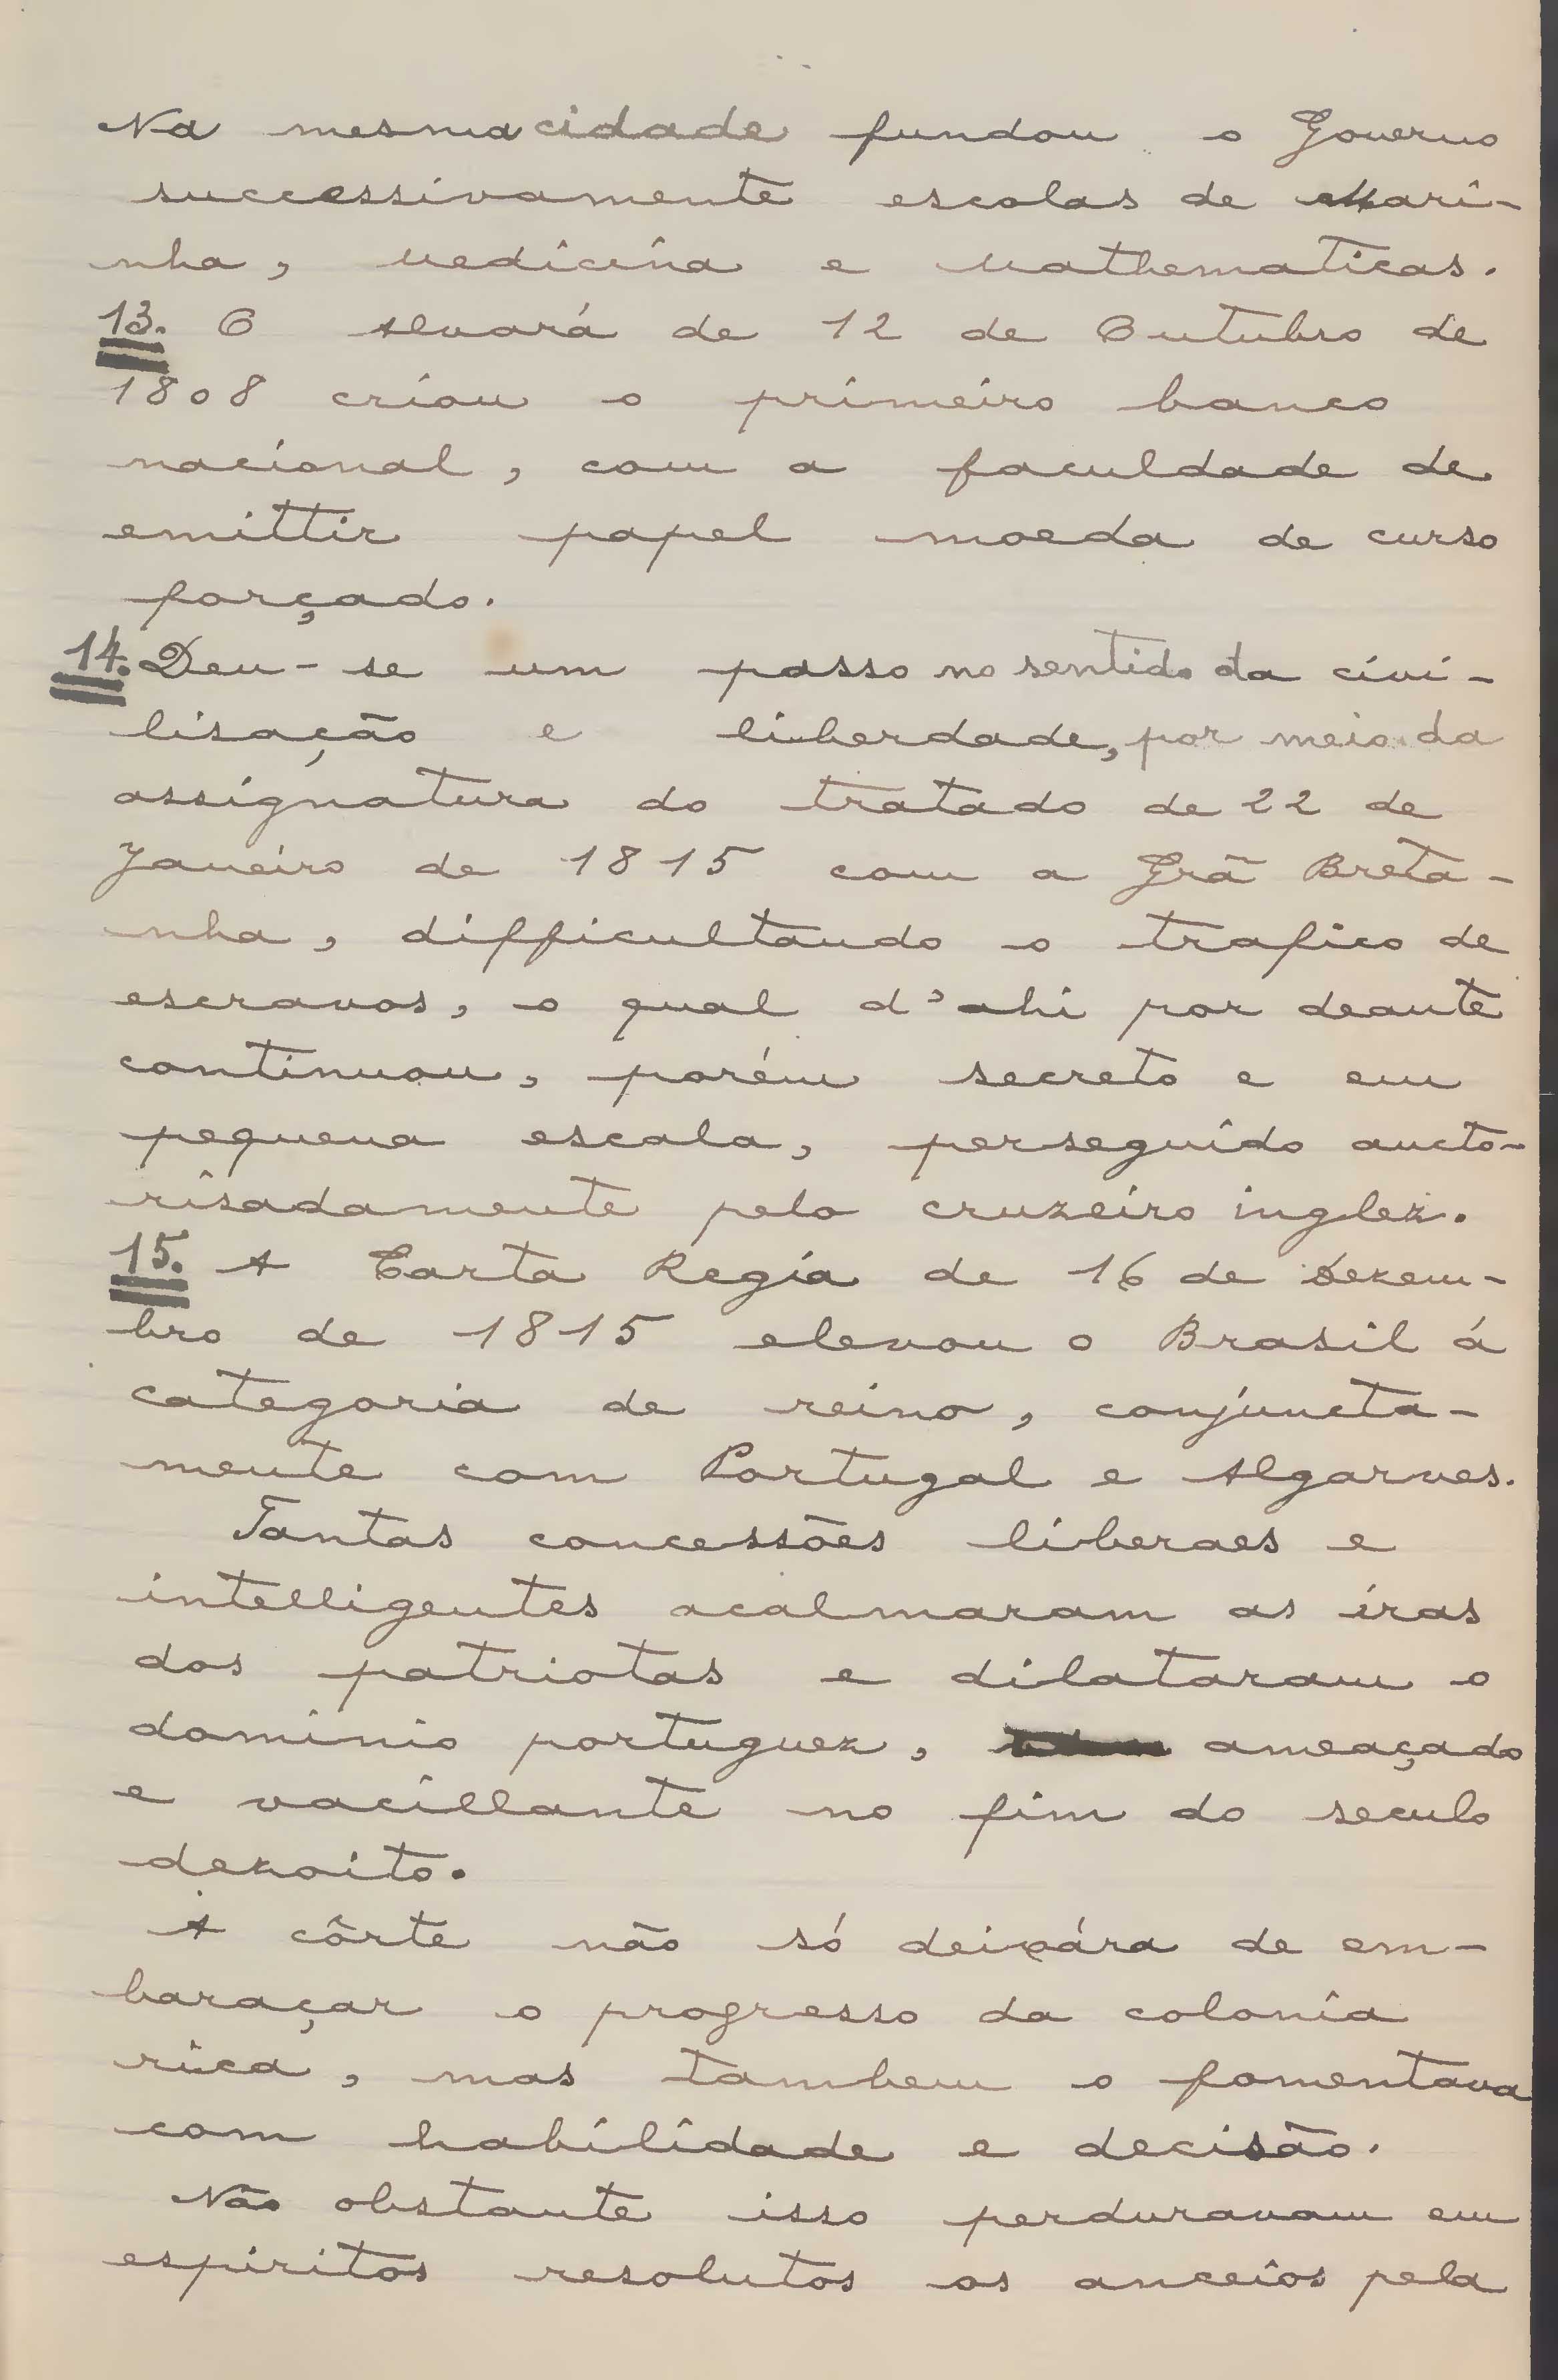 Na mesma cidade fundou o Governo
successivamente escolas de Mari-
nha, Medicina e Mathematicas.
13. O Alvará de 12 de Outubro de
1808 criou o primeiro banco
nacional, com a faculdade de
emittir papel moeda de curso
forçado.
14. Deu-se um passo no sentido da civi-
lisação e liberdade, por meio da
assignatura do tratado de 22 de
Janeiro de 1815 com a Grã Breta-
nha, difficultando o trafico de
escravos, o qual d'ahi por deante
continuou, porém secreto e em
pequena escala, perseguido aucto-
risadamente pelo cruzeiro inglez.
15. A Carta Regia de 16 de Dezem-
bro de 1815 elevou o Brasil á
categoria de reino, conjuncta-
mente com Portugal e Algarves.
Tantas concessões liberaes e
intelligentes acalmaram as iras
dos patriotas e dilataram o
dominio portuguez, ameaçado
e vacillante no fim do seculo
dezoito.
A côrte não só deixára de em-
baraçar o progresso da colonia
rica, mas tambem o fomentava
com habilidade e decisão.
Não obstante isso perduravam em
espiritos resolutos os anceios pela